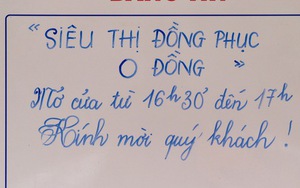 “ SIÊU THỊ ĐỒNG PHỤC
O ĐỒNG ”
Mở cửa từ 16h30' đến 17h
Kính mời quý khách !